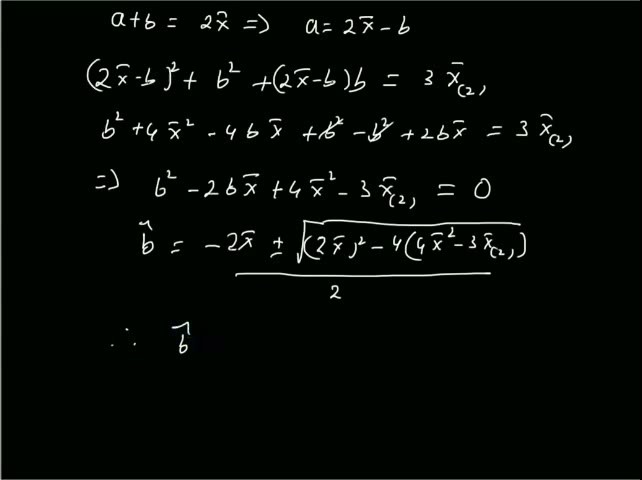 a+b = 2x̄ => a = 2x̄ - b
(2x̄-b)² + b² + (2x̄-b)b = 3 x̄₍₂₎
b² + 4x̄² - 4bx̄ + b² - b² + 2bx̄ = 3 x̄₍₂₎
=> b² - 2bx̄ + 4x̄² - 3x̄₍₂₎ = 0
b̂ = - 2x̄ ± √((2x̄)² - 4(4x̄² - 3x̄₍₂₎))
2
∴ b̂